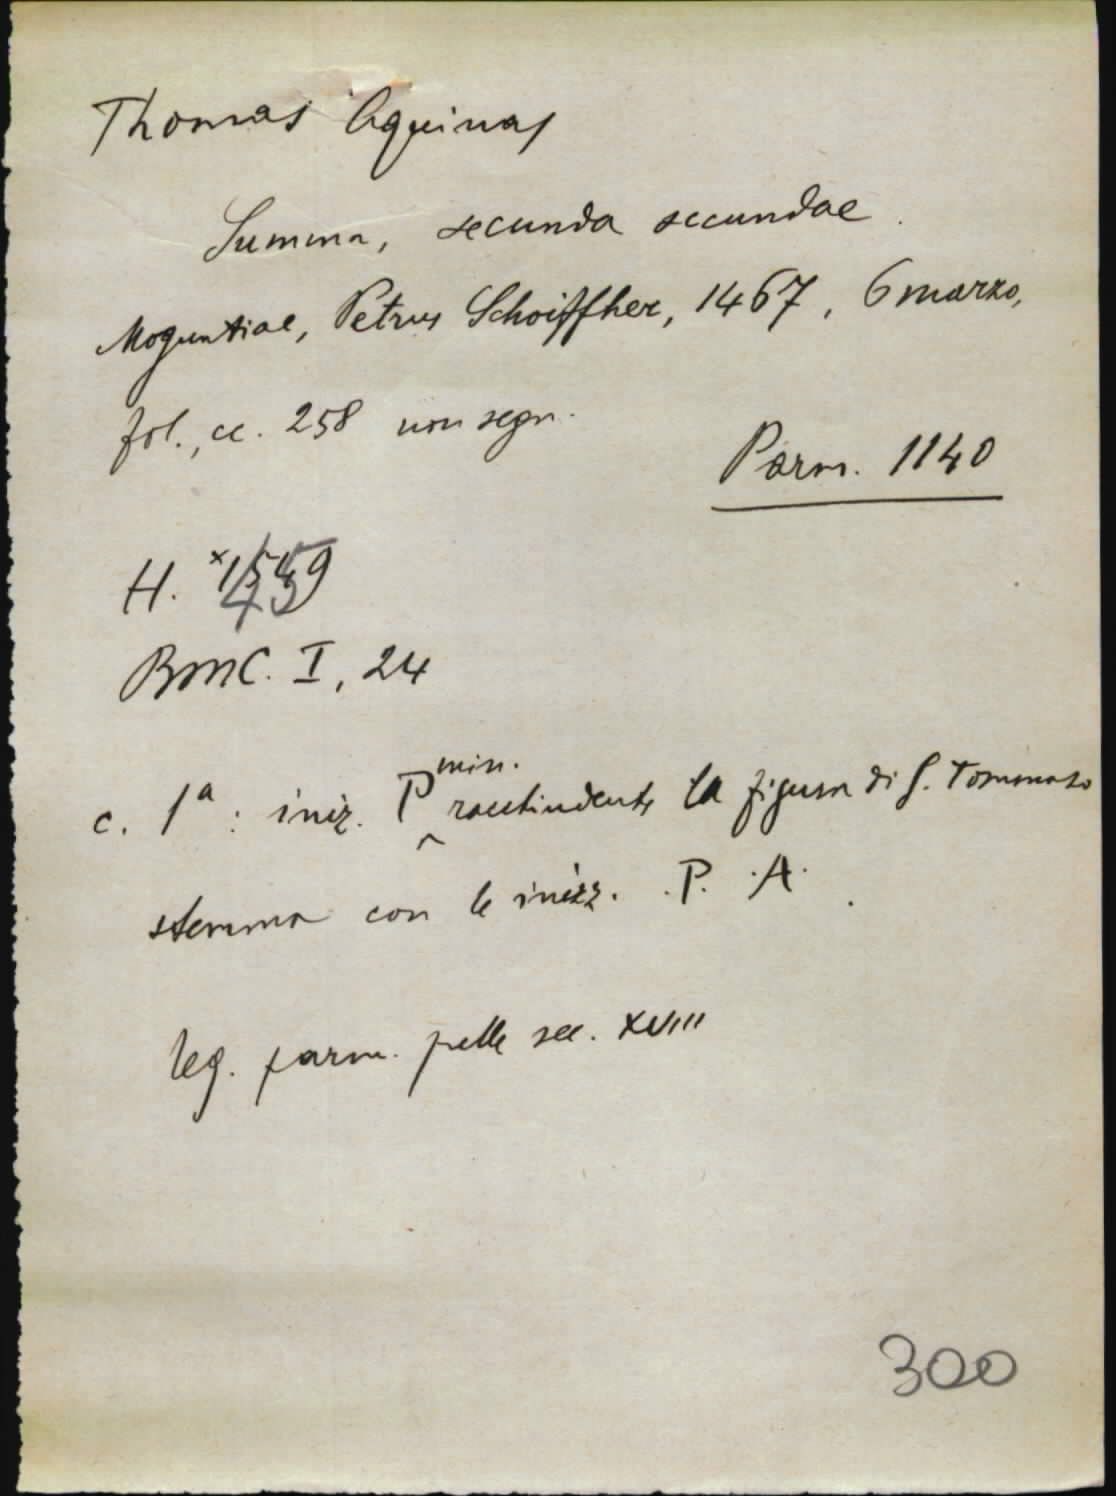 Thomas Aquinas
Summa, secunda secundae.
Moguntiae, Petrus Schoiffher, 1467, 6 marzo,
fol., cc. 258 non segn.
Parm. 1140
H. *1459
BMC. I, 24
c. 1ª : iniz. P min. racchiudente la figura di S. Tommaso
stemma con le inizz. .P. .A.
leg. parm. pelle sec. XVIII
300